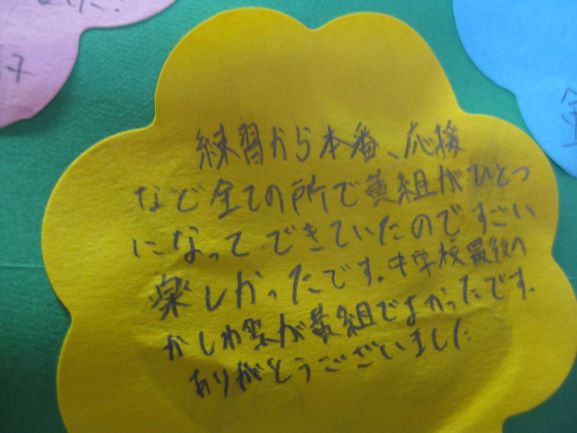 練習から本番、応援
など全ての所で黄組がひとつ
になって、できていたのですごい
楽しかったです。中学校最後の
かしわ祭が黄組でよかったです。
ありがとうございました